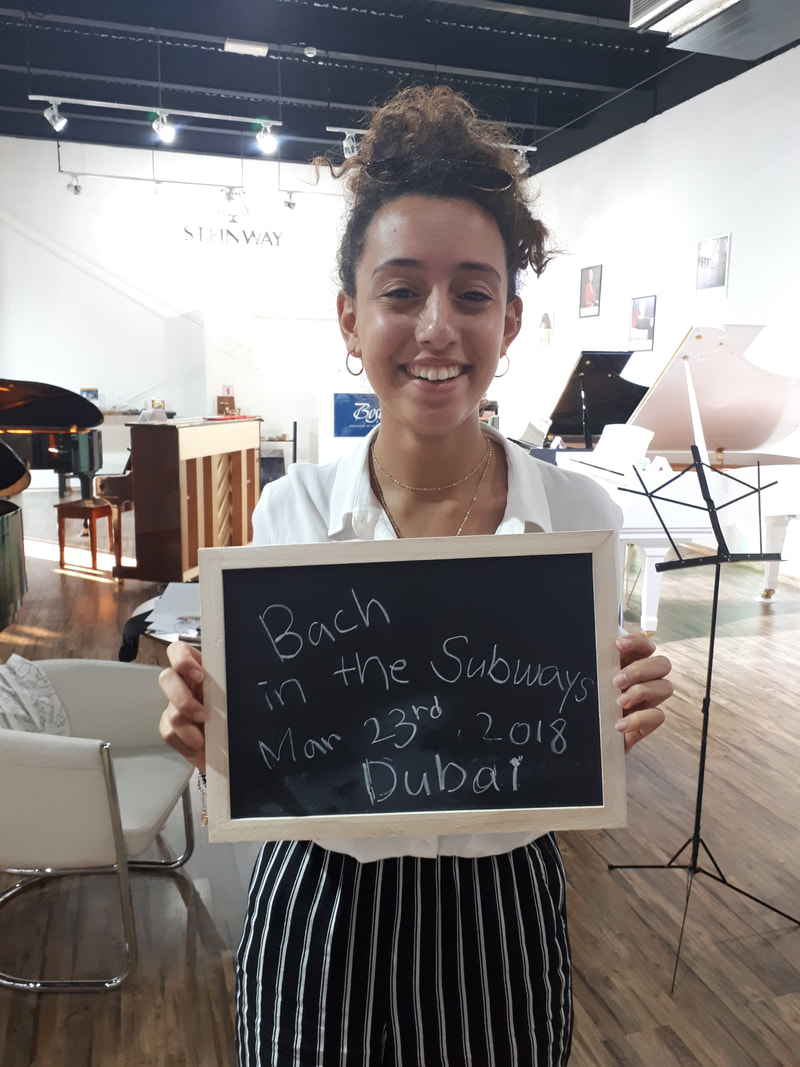 STEINWAY
Bach
in the Subways
Mar 23rd. 2018
Dubai